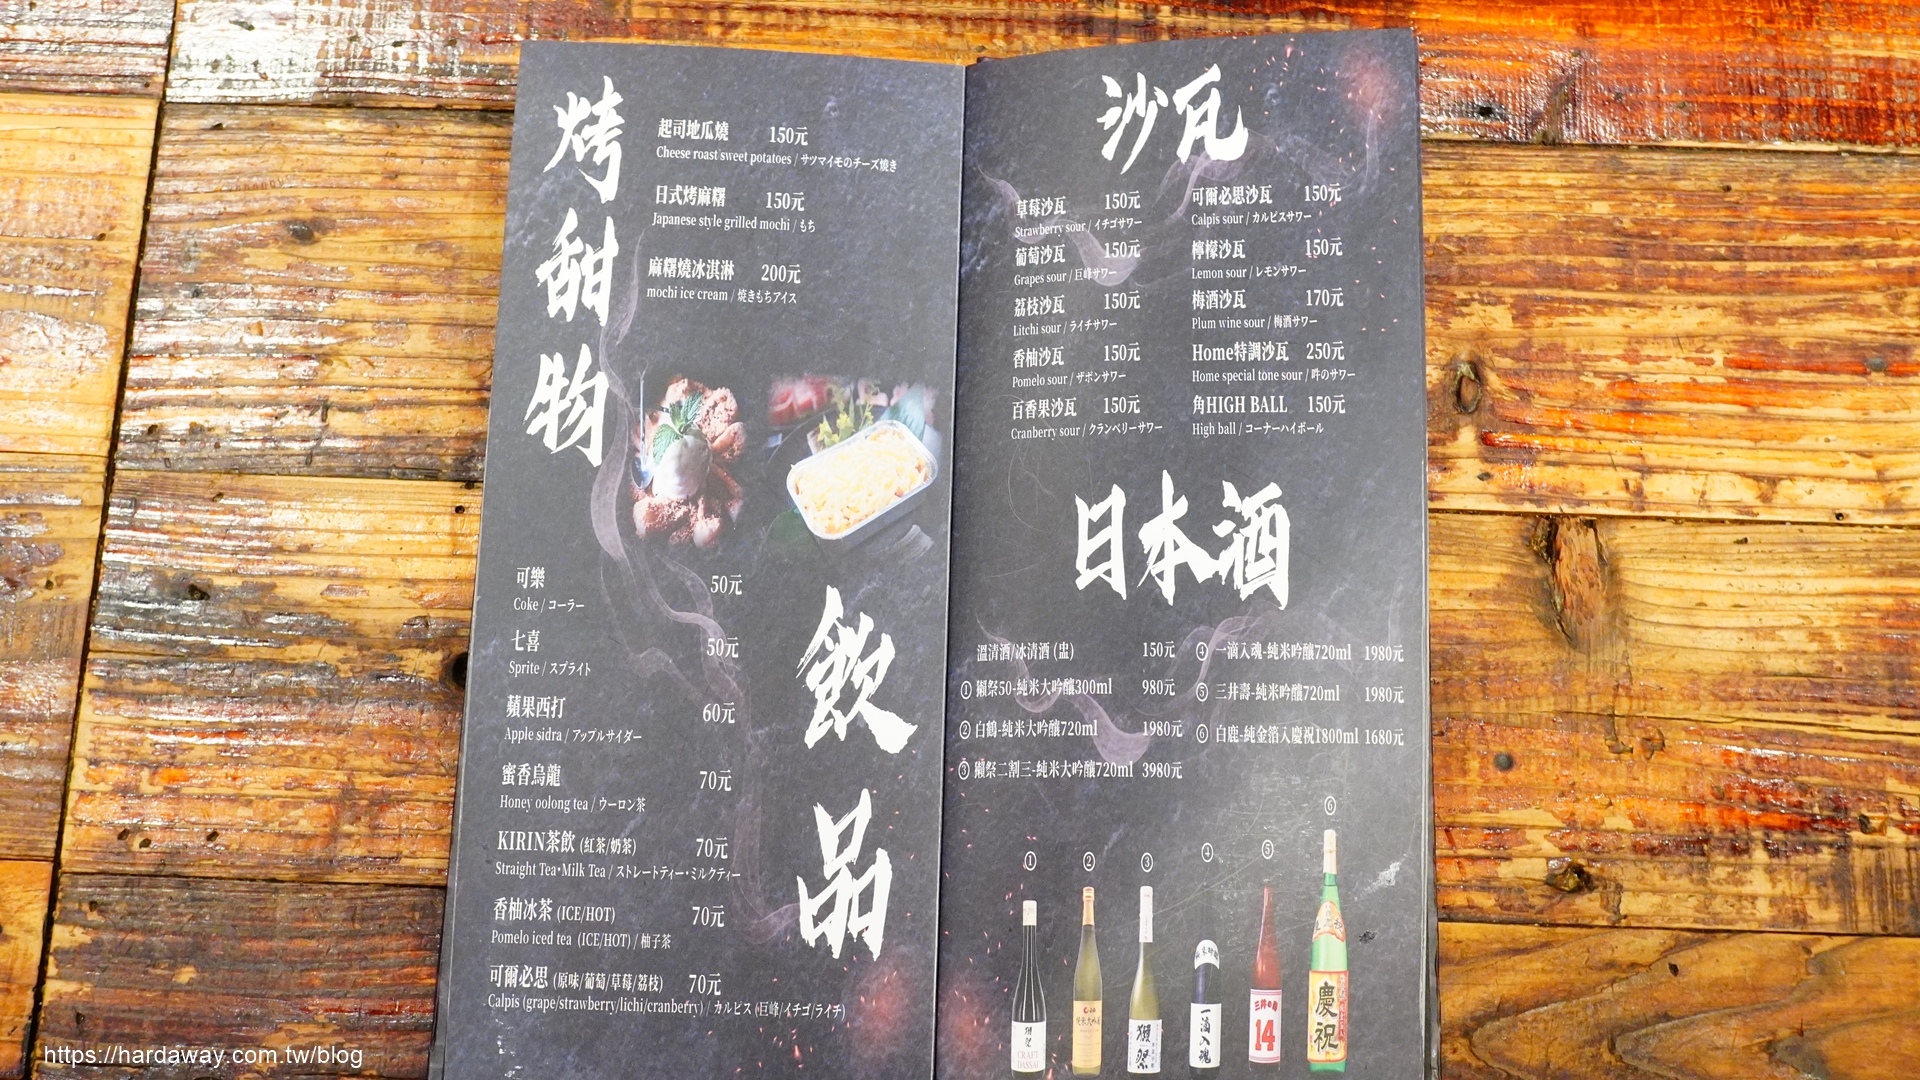 烤甜物
起司地瓜燒 150元
Cheese roast sweet potatoes / サツマイモのチーズ焼き
日式烤麻糬 150元
Japanese style grilled mochi / もち
麻糬燒冰淇淋 200元
mochi ice cream / 焼きもちアイス
飲品
可樂 50元
Coke / コーラー
七喜 50元
Sprite / スプライト
蘋果西打 60元
Apple sidra / アップルサイダー
蜜香烏龍 70元
Honey oolong tea / ウーロン茶
KIRIN茶飲 (紅茶/奶茶) 70元
Straight Tea・Milk Tea / ストレートティー・ミルクティー
香柚冰茶 (ICE/HOT) 70元
Pomelo iced tea (ICE/HOT) / 柚子茶
可爾必思 (原味/葡萄/草莓/荔枝) 70元
Calpis (grape/strawberry/lichi/cranberry) / カルピス (巨峰/イチゴ/ライチ)
沙瓦
草莓沙瓦 150元
Strawberry sour / イチゴサワー
葡萄沙瓦 150元
Grapes sour / 巨峰サワー
荔枝沙瓦 150元
Litchi sour / ライチサワー
香柚沙瓦 150元
Pomelo sour / ザボンサワー
百香果沙瓦 150元
Cranberry sour / クランベリーサワー
可爾必思沙瓦 150元
Calpis sour / カルピスサワー
檸檬沙瓦 150元
Lemon sour / レモンサワー
梅酒沙瓦 170元
Plum wine sour / 梅酒サワー
Home特調沙瓦 250元
Home special tone sour / 吽のサワー
角HIGH BALL 150元
High ball / コーナーハイボール
日本酒
溫清酒/冰清酒 (盅) 150元
① 獺祭50-純米大吟釀300ml 980元
② 白鶴-純米大吟釀720ml 1980元
③ 獺祭二割三-純米大吟釀720ml 3980元
④ 一滴入魂-純米吟釀720ml 1980元
⑤ 三井壽-純米吟釀720ml 1980元
⑥ 白鹿-純金箔入慶祝1800ml 1680元
① ② ③ ④ ⑤ ⑥
獺祭
CRAFT
DASSAI
獺祭
一滴入魂
三井の寿
14
慶祝
https://hardaway.com.tw/blog